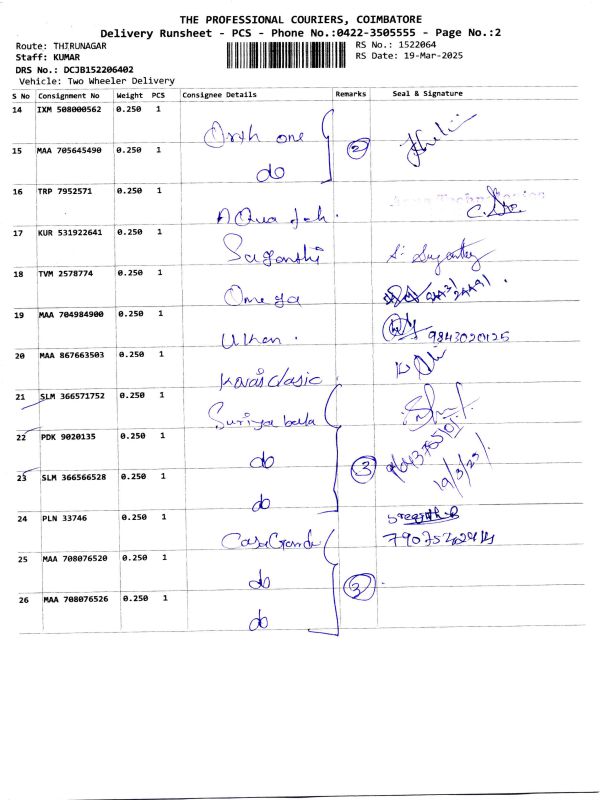 THE PROFESSIONAL COURIERS, COIMBATORE
Delivery Runsheet - PCS - Phone No.:0422-3505555 - Page No.:2
Route: THIRUNAGAR RS No.: 1522064
Staff: KUMAR RS Date: 19-Mar-2025
DRS No.: DCJB152206402
Vehicle: Two Wheeler Delivery
S No Consignment No Weight PCS Consignee Details Remarks Seal & Signature
14 IXM 508000562 0.250 1
one
15 MAA 705645490 0.250 1 2
do
16 TRP 7952571 0.250 1
Aqua
17 KUR 531922641 0.250 1
18 TVM 2578774 0.250 1
Omega
19 MAA 704984900 0.250 1
9843020125
20 MAA 867663503 0.250 1
21 SLM 366571752 0.250 1
Suriya bala
22 PDK 9020135 0.250 1
do 3
19/3/25
23 SLM 366566528 0.250 1
do
24 PLN 33746 0.250 1
CasaGrande
25 MAA 708076520 0.250 1
do 3
26 MAA 708076526 0.250 1
do